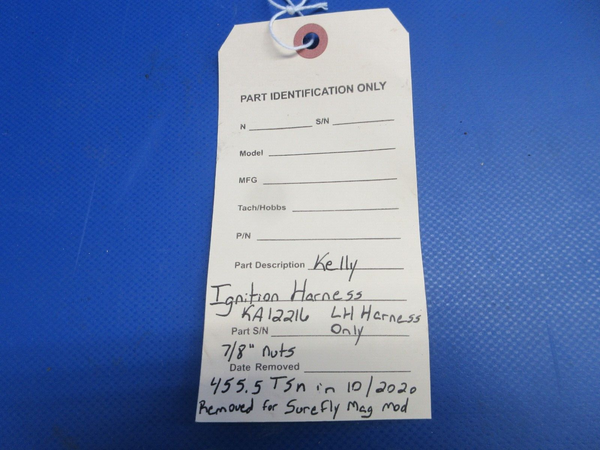 PART IDENTIFICATION ONLY
N S/N
Model
MFG
Tach/Hobbs
P/N
Part Description Kelly
Ignition Harness
KA12216 LH Harness
Part S/N Only
7/8" nuts
Date Removed
455.5 TSn in 10/2020
Removed for SureFly Mag Mod